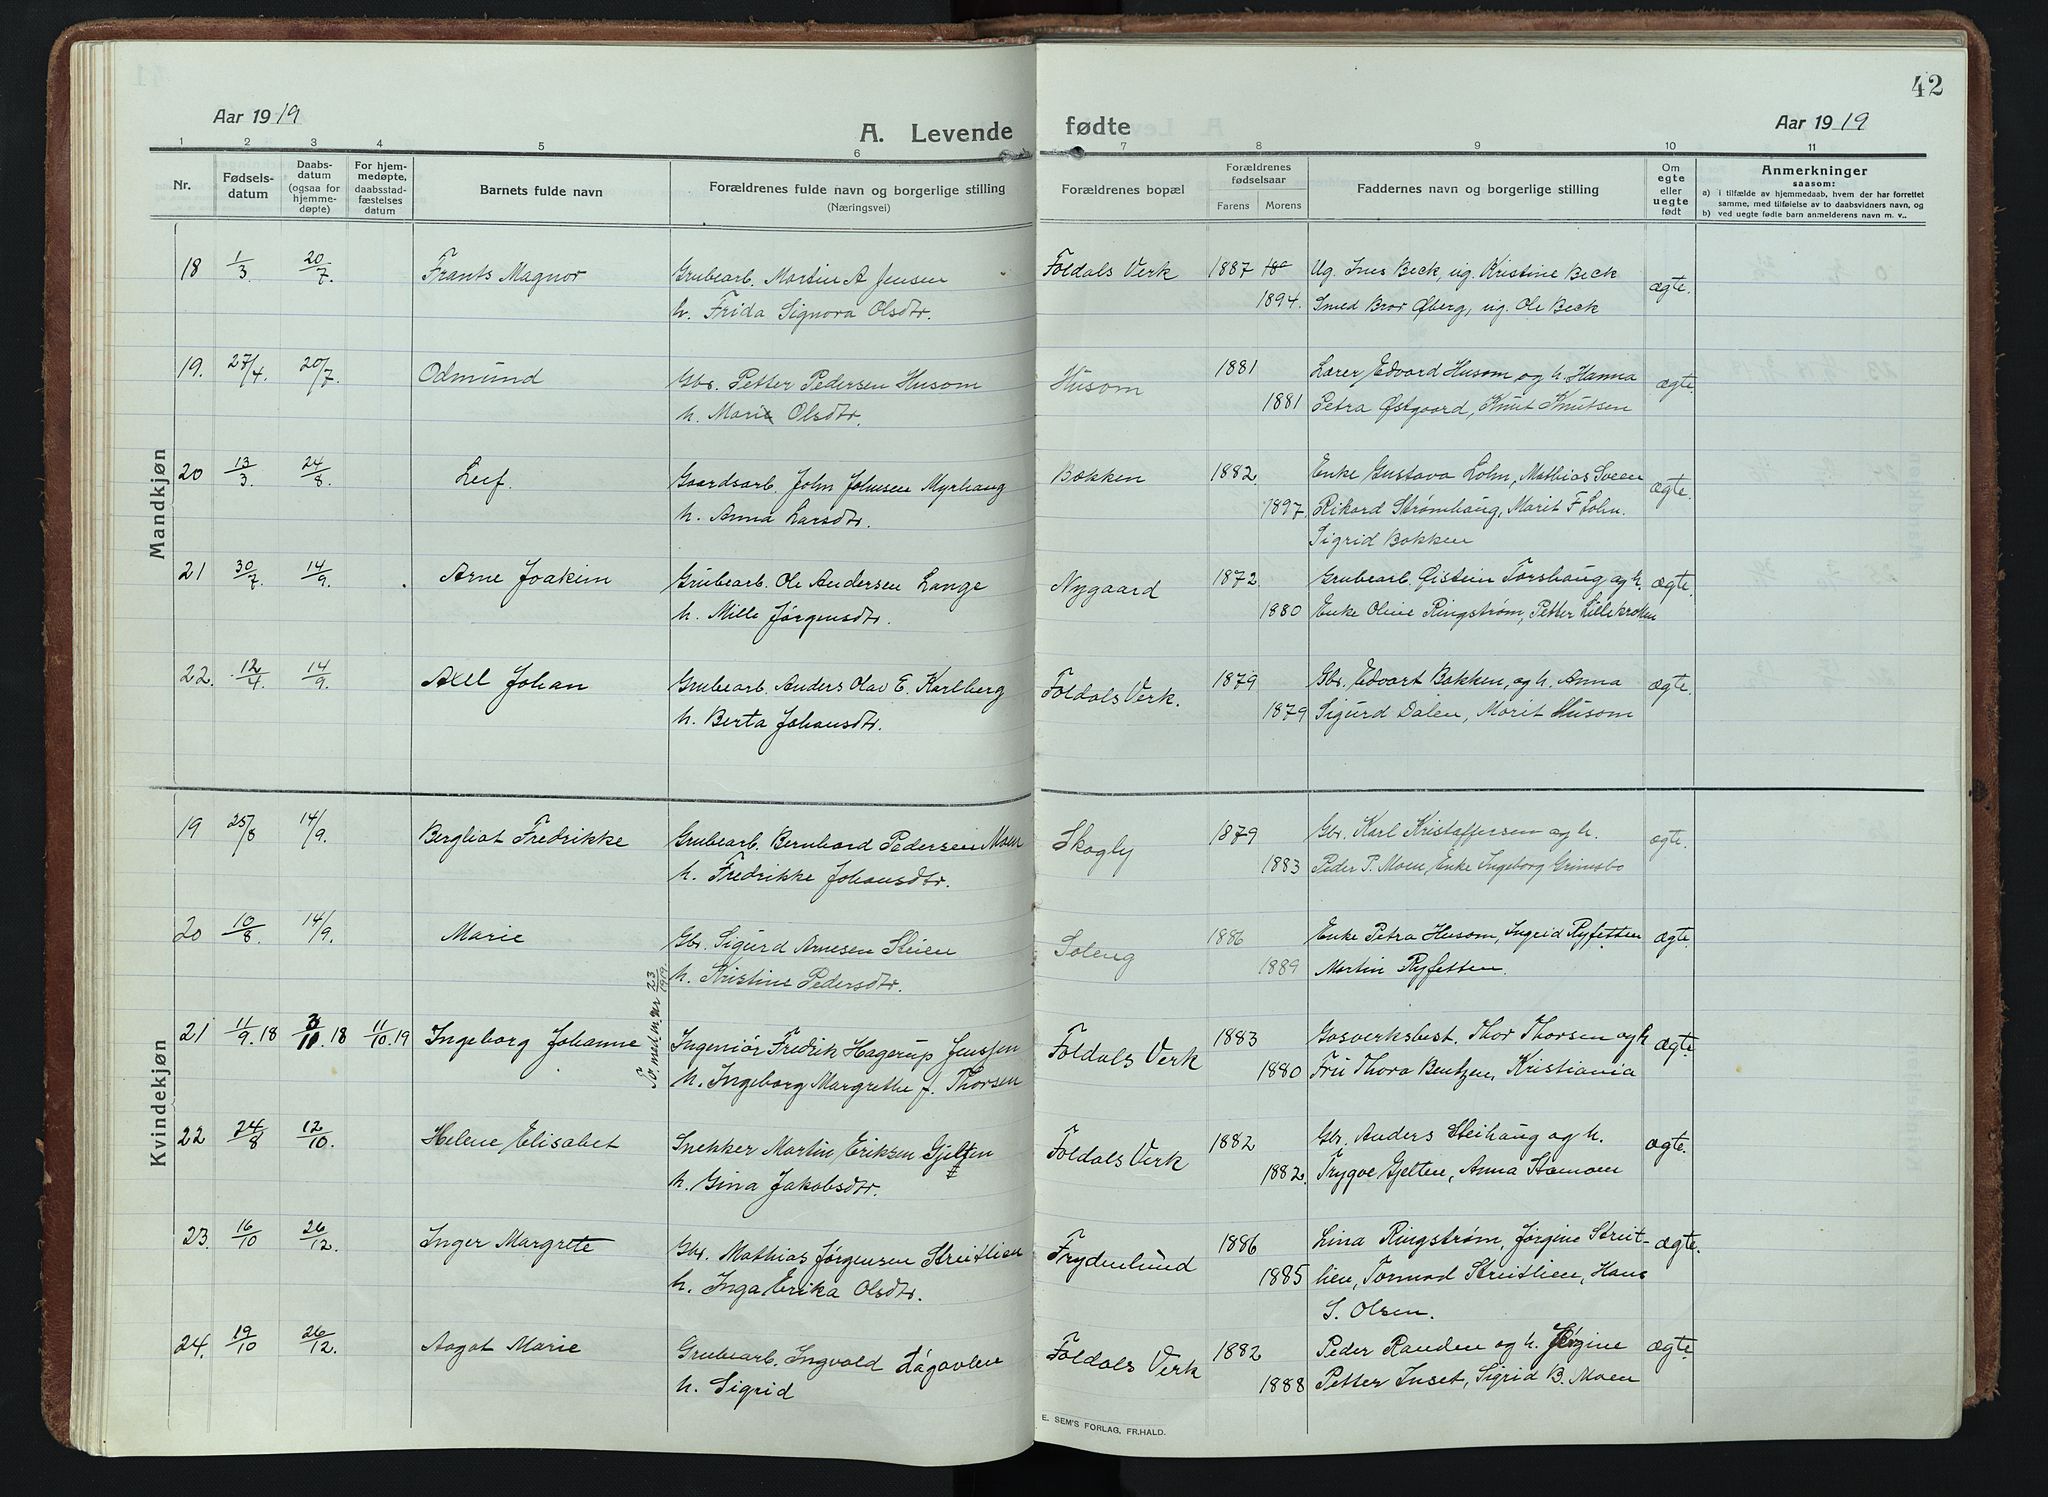 42
Aar 1919
A. Levende fødte
Aar 1919
1 2 3 4 5 6 7 8 9 10 11
Nr.
Fødsels-
datum
Daabs-
datum
(ogsaa for
hjemme-
døpte)
For hjem-
medøpte,
daabsstad-
fæstelses
datum
Barnets fulde navn
Forældrenes fulde navn og borgerlige stilling
(Næringsvei)
Forældrenes bopæl
Forældrenes
fødselsaar
Farens Morens
Faddernes navn og borgerlige stilling
Om
egte
eller
uegte
født
Anmerkninger
saasom:
a) i tilfælde av hjemmedaab, hvem der har forrettet
samme, med tilføielse av to daabsvidners navn, og
b) ved uegte fødte barn anmelderens navn m. v..
Mandkjøn
18 1/3 20/7. Frants Magnor Grubearb. Martin A Jensen Foldals Verk 1887 Ug. Ines Beck, ug. Kristine Beck ægte.
h. Frida Signora Olsdtr. 1894. Smed Bror Øberg, ug. Ole Beck
19. 27/4. 20/7. Odmund Gbr. Petter Pedersen Husom Husom 1881 Lærer Edvard Husom og h. Hanna ægte.
h. Marie Olsdtr. 1881 Petra Østgaard, Knut Knutsen
20 13/3. 24/8. Leif. Gaardsarb. John Johnsen Myrhaug Bækken 1882. Enke Gustava Lohn, Mathias Sveen ægte.
h. Anna Larsdtr. 1897. Rikard Strømhaug, Marit F Lohn.
Sigrid Bækken
21 30/7. 14/9. Arne Joakim Grubearb. Ole Andersen Lange Nygaard 1872 Grubearb. Øistein Torshaug og h. ægte.
h. Mille Jørgensdtr. 1880 Enke Oline Ringstrøm, Petter Lillekroken
22. 12/4. 14/9. Axel Johan Grubearb. Anders Olav E. Karlberg Foldals Verk. 1879 Gbr. Edvart Bækken, og h. Anna ægte.
h. Berta Johansdtr. 1879 Sigurd Dalen, Marit Husom
Kvindekjøn
19 25/8 14/9. Bergliot Fredrikke Grubearb. Bernhard Pedersen Moen Skogly 1879 Gbr. Karl Kristaffersen og h. ægte.
h. Fredrikke Johansdtr. 1883 Peder P. Moen, Enke Ingeborg Grimsbo
20 10/8. 14/9. Marie Gbr. Sigurd Arnesen Steien Soleng 1886 Enke Petra Husom, Ingrid Ryfetten ægte.
h. Kristine Pedersdtr. 1889 Martin Ryfetten.
21 11/9. 18 3/10. 18 11/10. 19 Ingeborg Johanne Ingeniør Fredrik Hagerup Jenssen Foldals Verk 1883 Gasverksbest. Thor Thorsen og h ægte.
h. Ingeborg Margrethe f. Thorsen 1880 Fru Thora Bentzen, Kristiania
22 24/8 12/10. Helene Elisabet Snekker Martin Eriksen Gjelten Foldals Verk 1882 Gbr. Anders Steihaug og h. ægte.
h. Gina Jakobsdtr. 1882. Trygve Gjelten, Anna Stamoen
23. 16/10 26/12. Inger Margrete Gbr. Mathias Jørgensen Streitlien Frydenlund 1886 Lina Ringstrøm, Jørgine Streit- ægte.
h. Inga Erika Olsdtr. 1885 lien, Tormod Streitlien, Hans
S. Olsen.
24. 19/10 26/12. Aagot Marie Grubearb. Ingvald Foldals Verk 1882 Peder Randen og h. Jørgine ægte.
h. Sigrid 1888 Petter Inset, Sigrid B. Moen
E. SEM'S FORLAG, FR.HALD.